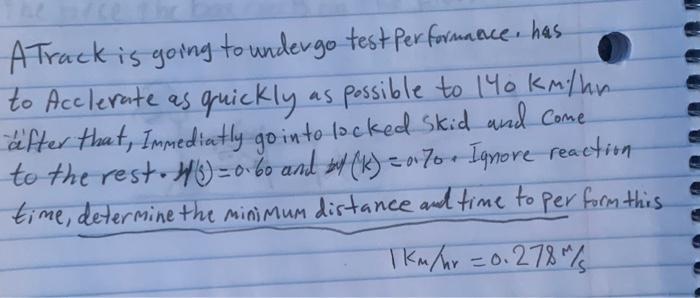 A Track is going to undergo test Performance. has
to Acclerate as quickly as possible to 140 Km/hr
after that, Immediatly go into locked skid and Come
to the rest. M(s) = 0.60 and M(k) = 0.70. Ignore reaction
time, determine the minimum distance and time to perform this
1 Km/hr = 0.278 m/s